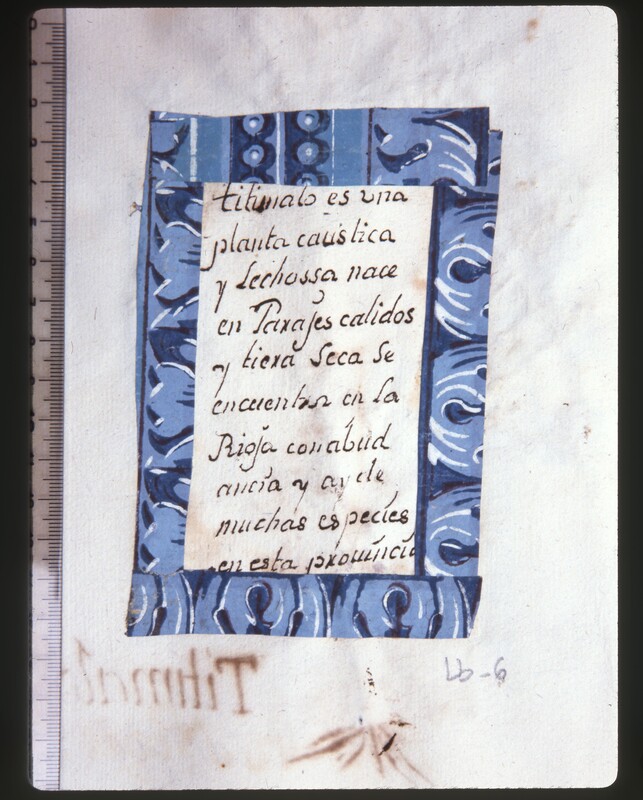 titimalo es una
planta caústica
y Lechossa nace
en Parajes calidos
y tiera Seca Se
encuentra en la
Rioja conabud
ancia y ay de
muchas especies
en esta prouincia
Titimalo